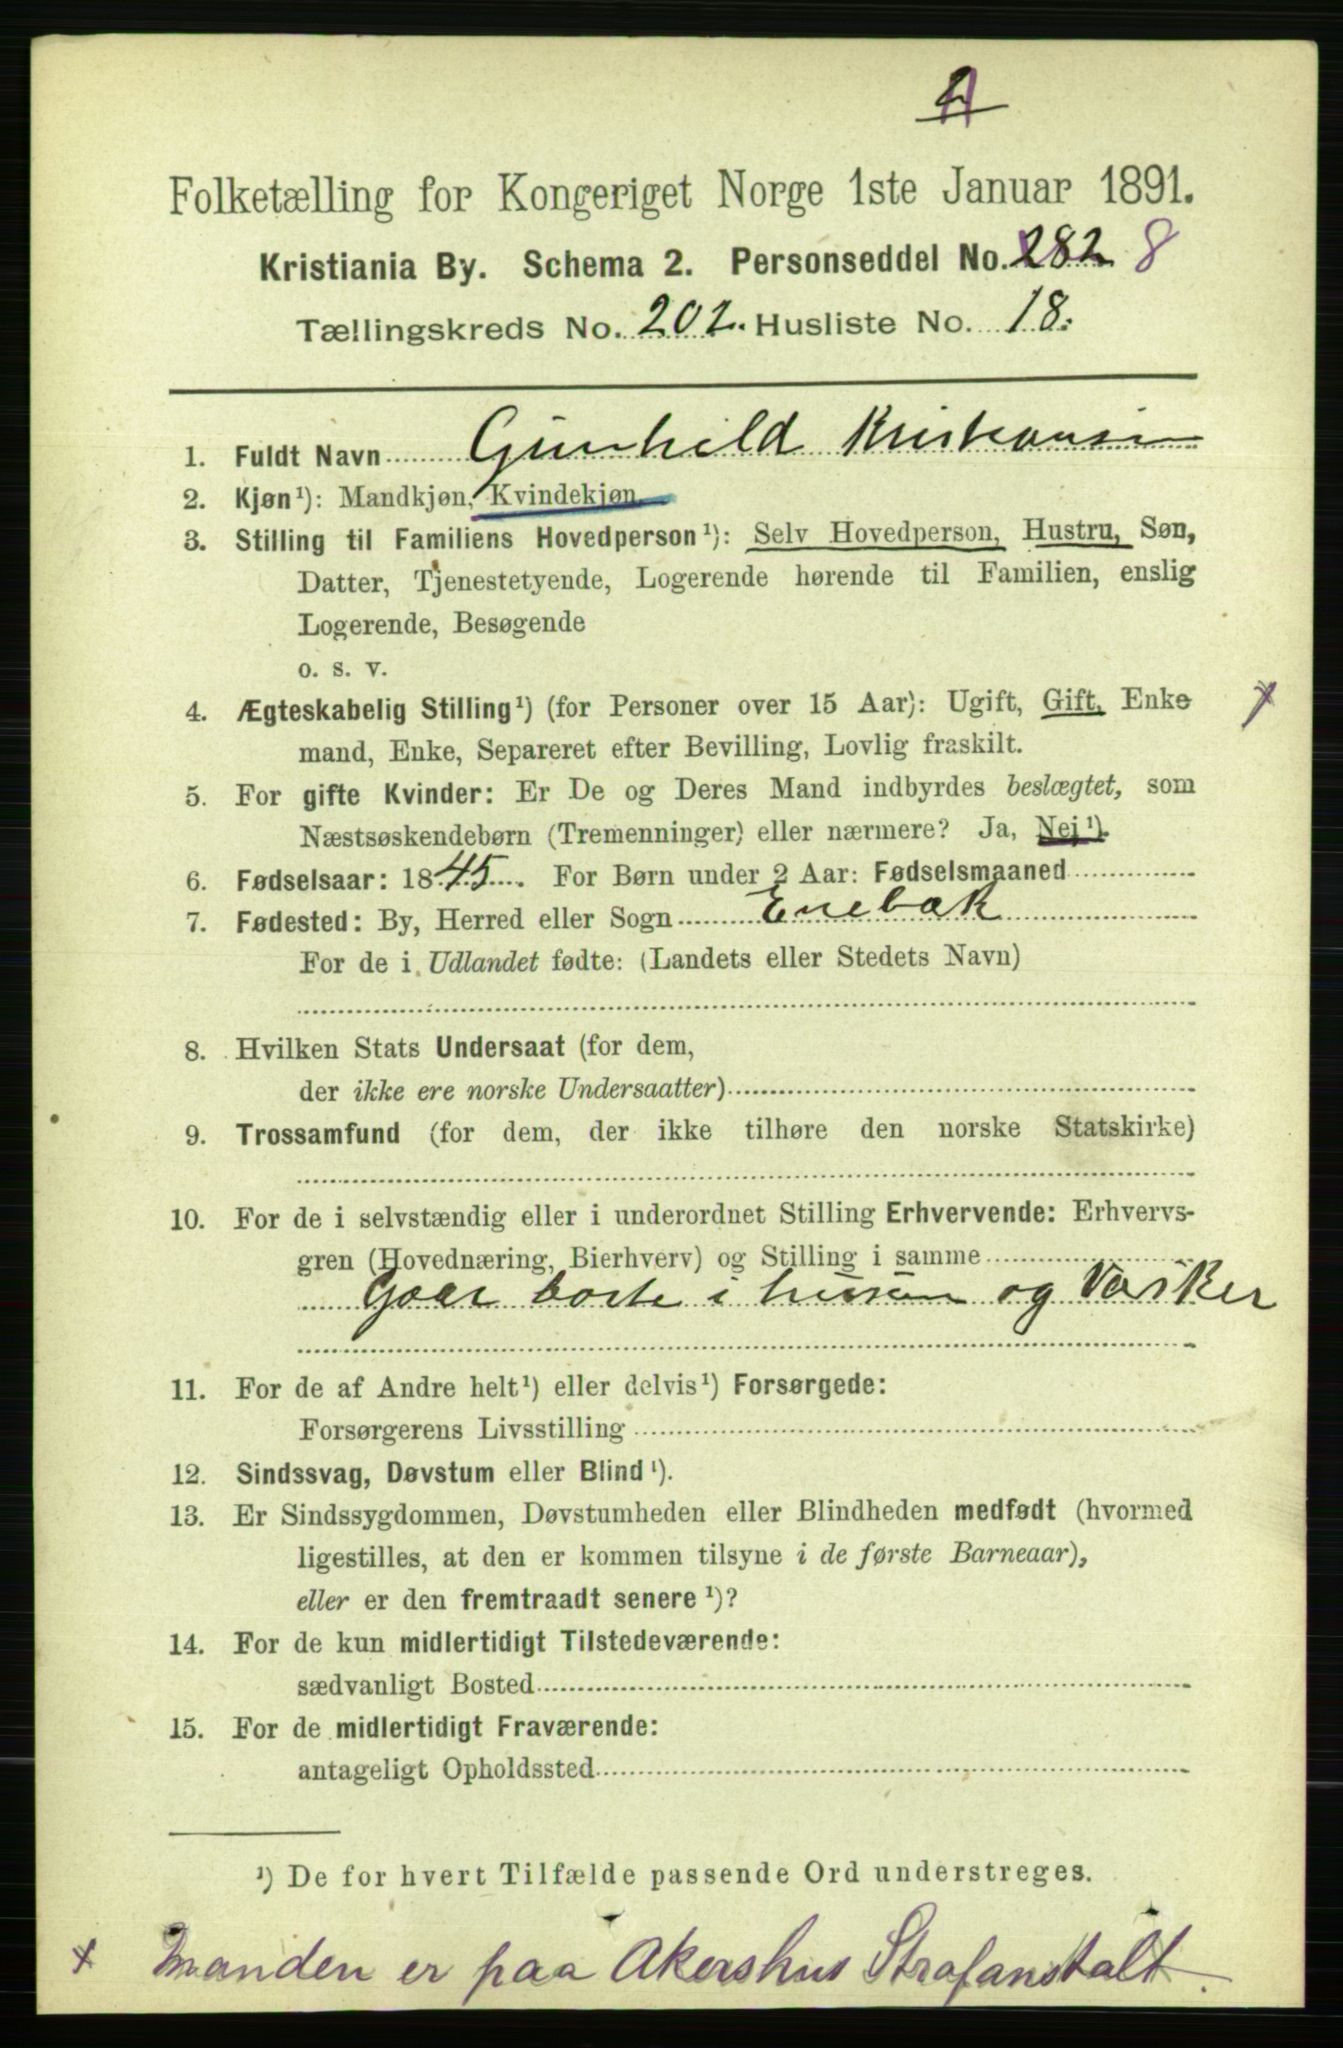 Folketælling for Kongeriget Norge 1ste Januar 1891.
Kristiania By. Schema 2. Personseddel No. 282 8
Tællingskreds No. 202. Husliste No. 18.
1. Fuldt Navn Gunhild Kristiansen
2. Kjøn¹): Mandkjøn, Kvindekjøn.
3. Stilling til Familiens Hovedperson¹): Selv Hovedperson, Hustru, Søn,
Datter, Tjenestetyende, Logerende hørende til Familien, enslig
Logerende, Besøgende
o. s. v.
4. Ægteskabelig Stilling¹) (for Personer over 15 Aar): Ugift, Gift, Enke
mand, Enke, Separeret efter Bevilling, Lovlig fraskilt. +
5. For gifte Kvinder: Er De og Deres Mand indbyrdes beslægtet, som
Næstsøskendebørn (Tremenninger) eller nærmere? Ja, Nej¹).
6. Fødselsaar: 1845. For Børn under 2 Aar: Fødselsmaaned
7. Fødested: By, Herred eller Sogn Enebak
For de i Udlandet fødte: (Landets eller Stedets Navn)
8. Hvilken Stats Undersaat (for dem,
der ikke ere norske Undersaatter)
9. Trossamfund (for dem, der ikke tilhøre den norske Statskirke)
10. For de i selvstændig eller i underordnet Stilling Erhvervende: Erhvervs-
gren (Hovednæring, Bierhverv) og Stilling i samme
Gaar borte i husene og Vasker
11. For de af Andre helt¹) eller delvis¹) Forsørgede:
Forsørgerens Livsstilling
12. Sindssvag, Døvstum eller Blind¹).
13. Er Sindssygdommen, Døvstumheden eller Blindheden medfødt (hvormed
ligestilles, at den er kommen tilsyne i de første Barneaar),
eller er den fremtraadt senere¹)?
14. For de kun midlertidigt Tilstedeværende:
sædvanligt Bosted
15. For de midlertidigt Fraværende:
antageligt Opholdssted
¹) De for hvert Tilfælde passende Ord understreges.
+ Manden er paa Akershus Strafanstalt.